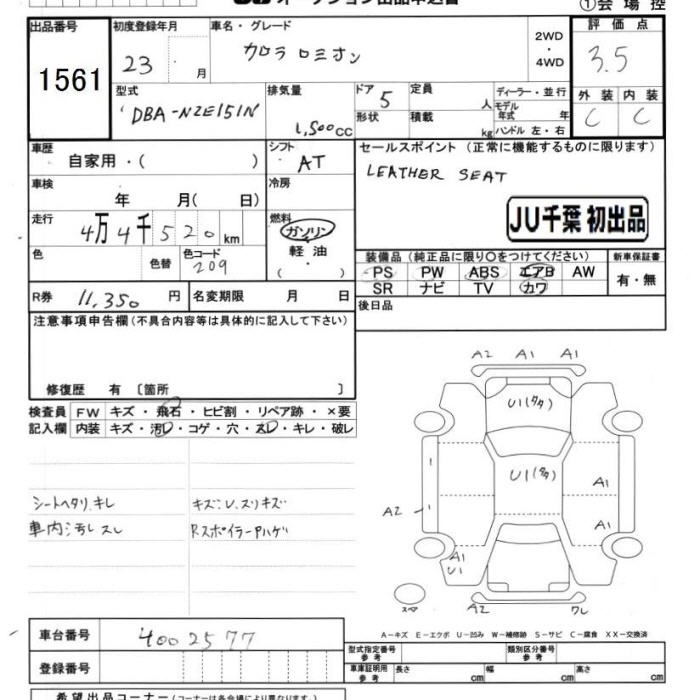 ①会場控
出品番号
1561
初度登録年月
23 . 月
車名・グレード
カローラルミオン
2WD
・
4WD
評価点
3.5
型式
DBA-NZE151N
排気量
1,500cc
ドア 5
定員 人
形状
積載 kg
ディーラー・並行
モデル年式 年
ハンドル 左・右
外装 内装
C C
車歴
自家用・( )
シフト
AT
セールスポイント (正常に機能するものに限ります)
LEATHER SEAT
JU千葉 初出品
車検
年 月( 日)
冷房
走行
4万4千520km
燃料
ガソリン
軽油
( ・ )
色
色替
色コード
209
装備品 (純正品に限り○をつけてください)
PS PW ABS エアB AW
SR ナビ TV カワ
新車保証書
有・無
R券 11,350 円
名変期限 月 日
後日品
注意事項申告欄(不具合内容等は具体的に記入して下さい)
修復歴 有 〔箇所 〕
検査員記入欄
FW キズ・飛石・ヒビ割・リペア跡・×要
内装 キズ・汚レ・コゲ・穴・スレ・キレ・破レ
シートヘタリ.キレ
車内汚レスレ
キズ:U.スリキズ
Rスポイラーハゲ
A2 A1 A1
U1(タタ)
U1(タタ)
A1
A2
A1
A1
U1
スペア
A2 ワレ
A-キズ E-エクボ U-凹み W-補修跡 S-サビ C-腐食 XX-交換済
車台番号
4002577
登録番号
型式指定番号
参考
類別区分番号
参考
車庫証明用
参考
長さ cm
幅 cm
高さ cm
希望出品コーナー